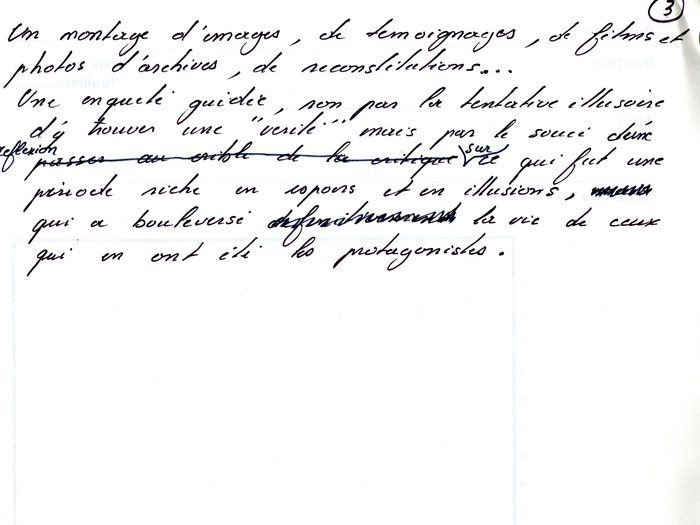 3
Un montage d'images, de témoignages, de films et
photos d'archives, de reconstitutions...
Une enquête guidée, non par la tentative illusoire
d'y trouver une "vérité" mais par le souci d'une
réflexion passer au crible de la critique sur ce qui fut une
période riche en espoirs et en illusions,
qui a bouleversé la vie de ceux
qui en ont été les protagonistes.